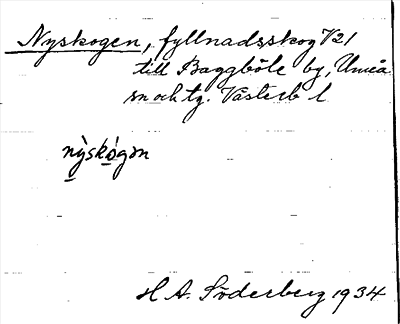 Nyskogen, fyllnadsskog V21
till Baggböle by, Umeå
sn och tg. Västerb l
ny̆skògən
H A. Söderberg 1934